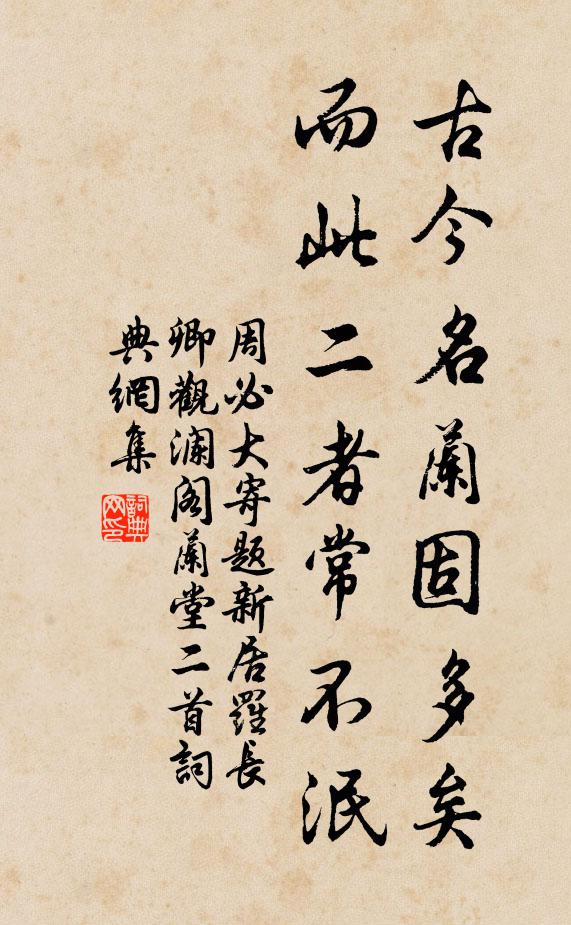 古今名蘭固多矣
而此二者常不泯
周必大寄題新居羅長
卿觀瀾閣蘭堂二首詞
典網集
詞典網印